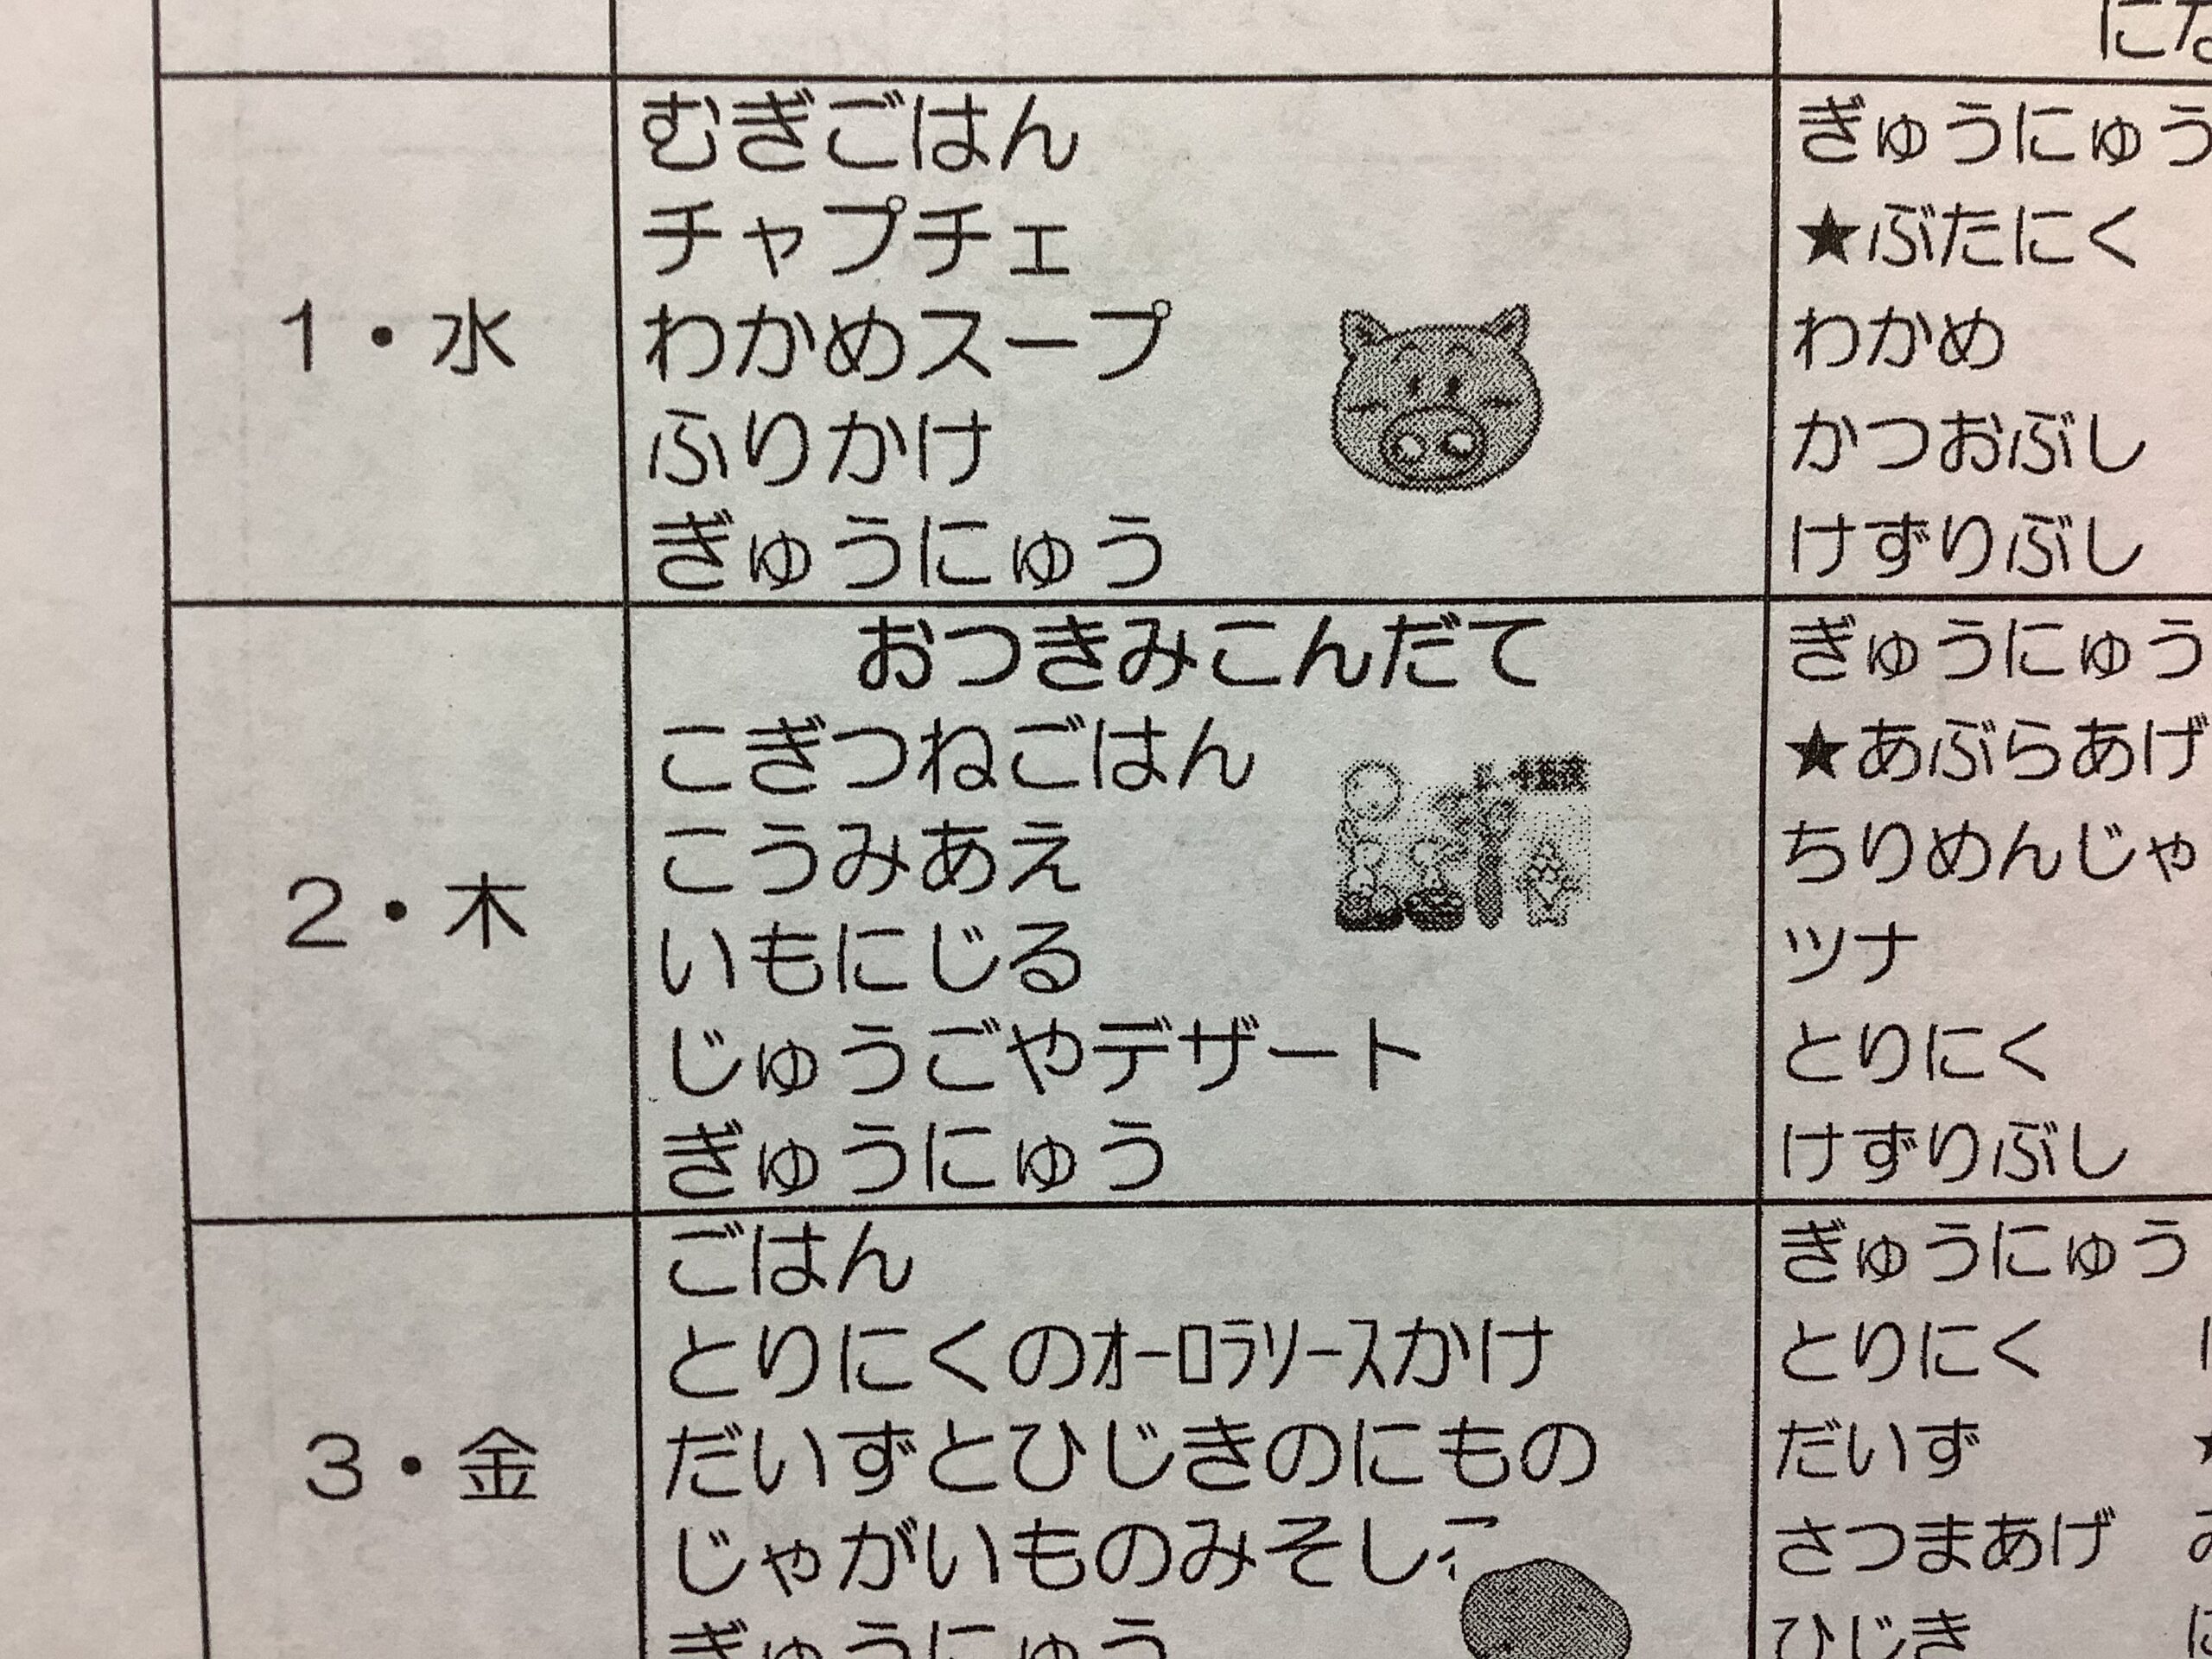 にな
1・水
むぎごはん
チャプチェ
わかめスープ
ふりかけ
ぎゅうにゅう
ぎゅうにゅう
★ぶたにく
わかめ
かつおぶし
けずりぶし
2・木
おつきみこんだて
こぎつねごはん
こうみあえ
いもにじる
じゅうごやデザート
ぎゅうにゅう
ぎゅうにゅう
★あぶらあげ
ちりめんじゃ
ツナ
とりにく
けずりぶし
3・金
ごはん
とりにくのｵｰﾛﾗｿｰｽかけ
だいずとひじきのにもの
じゃがいものみそし
ぎゅうにゅう
ぎゅうにゅう
とりにく
だいず
さつまあげ
ひじき